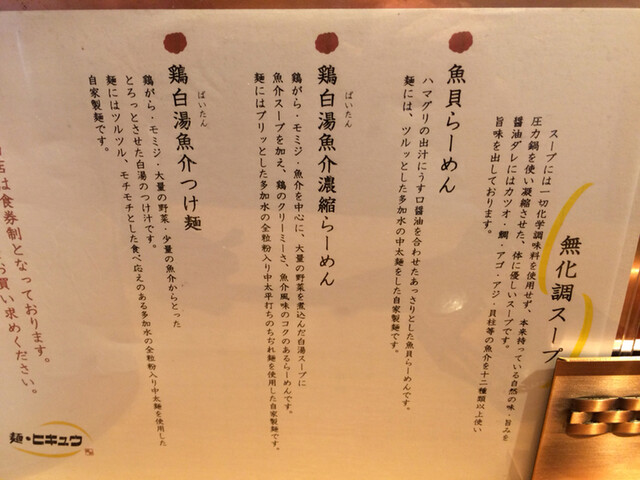 無化調スープ
スープには一切化学調味料を使用せず、本来持っている自然の味・旨みを
圧力鍋を使い凝縮させた、体に優しいスープです。
醤油ダレにはカツオ・鯛・アゴ・アジ・貝柱等の魚介を十二種類以上使い
旨味を出しております。
魚貝らーめん
ハマグリの出汁にうす口醤油を合わせたあっさりとした魚貝らーめんです。
麺には、ツルッとした多加水の中太麺をした自家製麺です。
鶏白湯魚介濃縮らーめん
ぱいたん
鶏がら・モミジ・魚介を中心に、大量の野菜を煮込んだ白湯スープに
魚介スープを加え、鶏のクリーミーさ、魚介風味のコクのあるらーめんです。
麺にはプリッとした多加水の全粒粉入り中太平打ちのちぢれ麺を使用した自家製麺です。
鶏白湯魚介つけ麺
ぱいたん
鶏がら・モミジ・大量の野菜・少量の魚介からとった
とろっとさせた白湯のつけ汁です。
麺にはツルツル、モチモチとした食べ応えのある多加水の全粒粉入り中太麺を使用した
自家製麺です。
店は食券制となっております。
お買い求めください。
麺・ヒキュウ